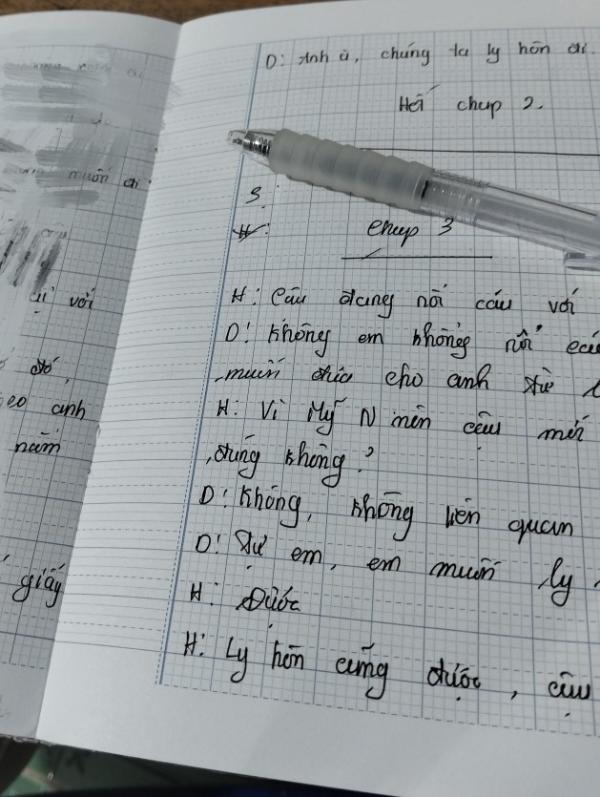 muốn đi
với
đó,
eo anh
năm
giấy
D: Anh à, chúng ta ly hôn đi.
Hết chap 2.
3
chap 3
H: Cậu đang nói cáu với
D: Không em không nói
muốn đưa cho anh từ
H: Vì Mỹ N nên cậu mới
, đúng không?
D: Không, không liên quan
D: Tự em, em muốn ly
H: Được
H: Ly hôn cũng được, cậu